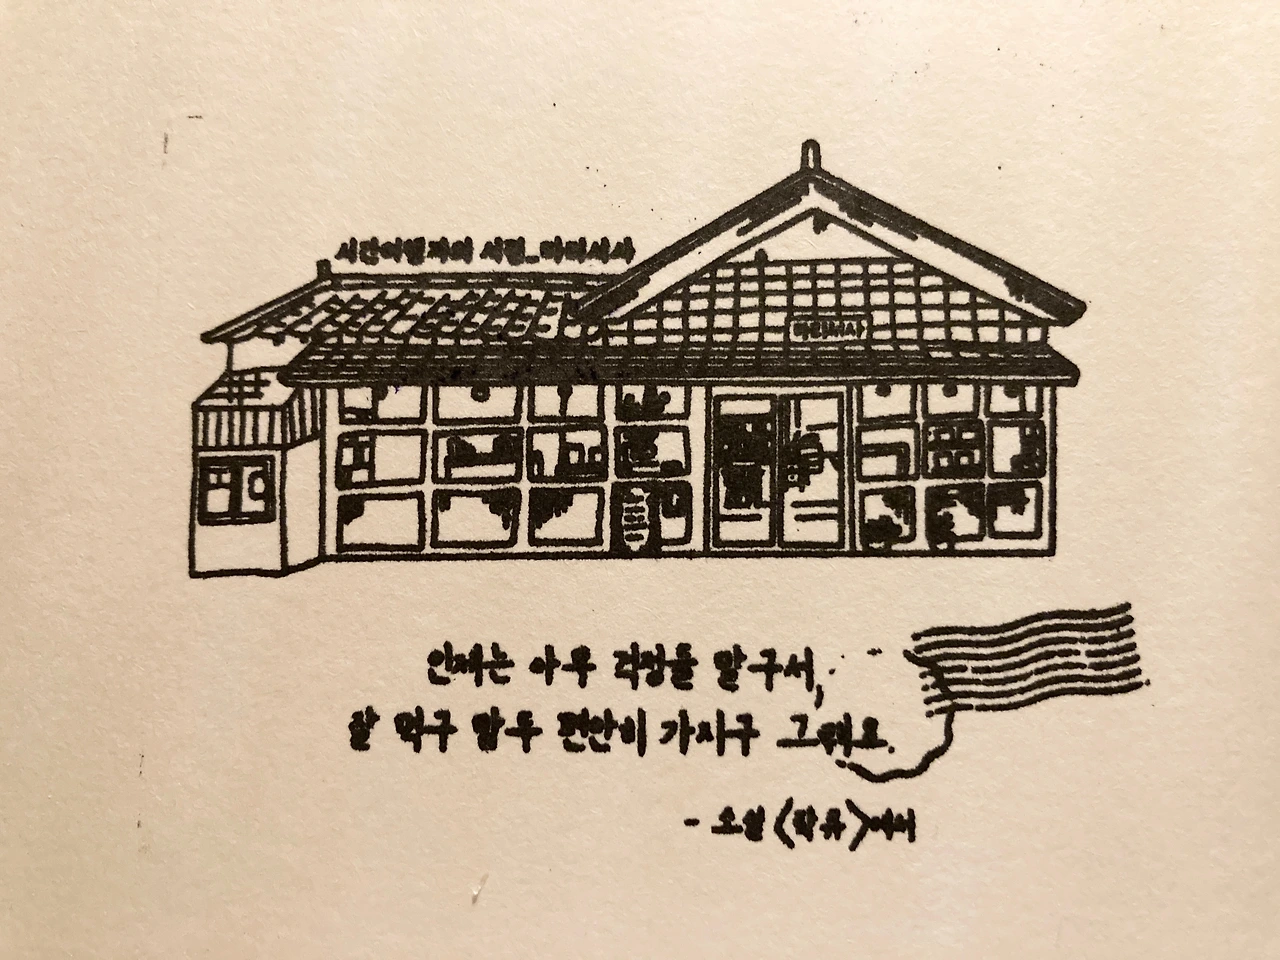 시간여행자의 서점_마리서사
마리서사
인제는 아무 걱정들 말구서,
잘 먹구 맘두 편안히 가지구 그래요.
- 소설 〈탁류〉에서